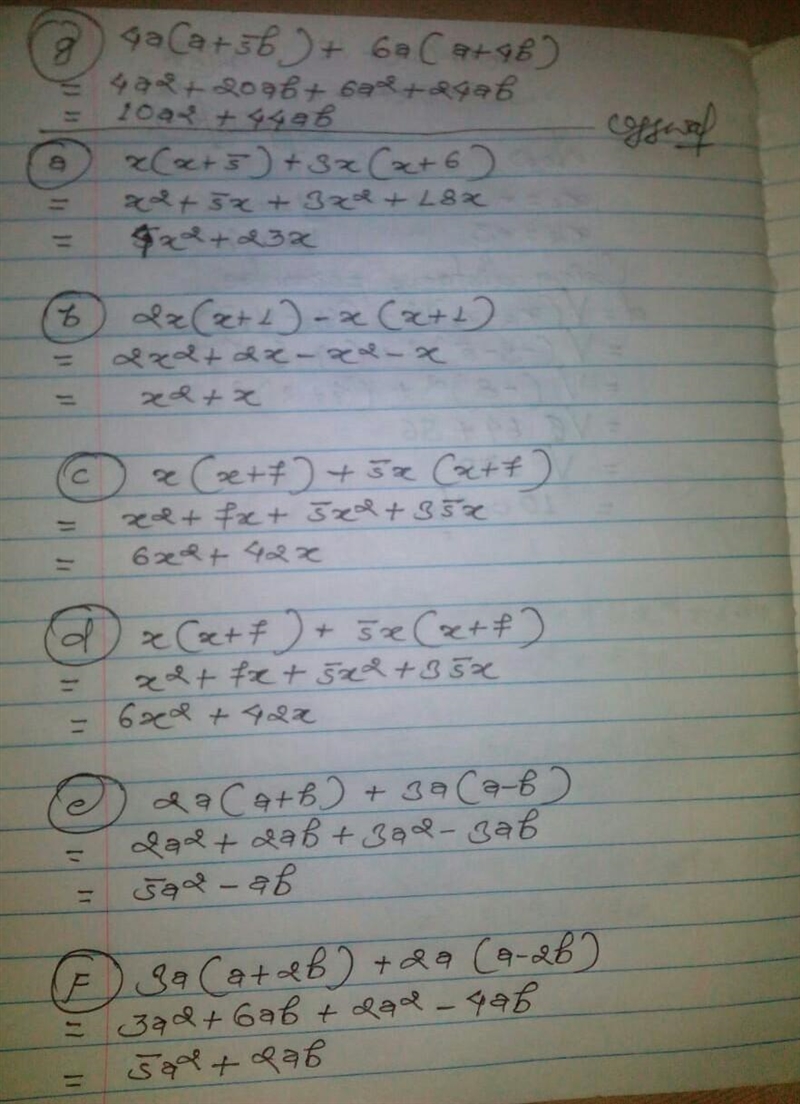 g 4a(a+5b) + 6a(a+4b)
= 4a2 + 20ab + 6a2 + 24ab
= 10a2 + 44ab
a x(x+5) + 3x(x+6)
= x2 + 5x + 3x2 + 18x
= 4x2 + 23x
b 2x(x+1) - x(x+1)
= 2x2 + 2x - x2 - x
= x2 + x
c x(x+7) + 5x(x+7)
= x2 + 7x + 5x2 + 35x
= 6x2 + 42x
d x(x+7) + 5x(x+7)
= x2 + 7x + 5x2 + 35x
= 6x2 + 42x
e 2a(a+b) + 3a(a-b)
= 2a2 + 2ab + 3a2 - 3ab
= 5a2 - ab
F 3a(a+2b) + 2a(a-2b)
= 3a2 + 6ab + 2a2 - 4ab
= 5a2 + 2ab